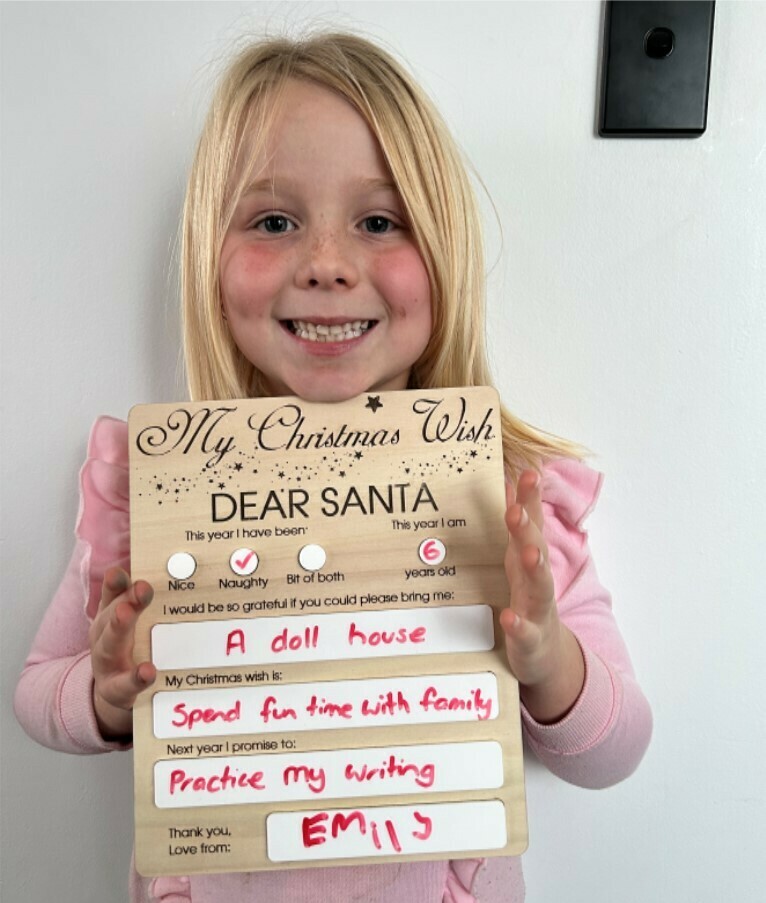 My Christmas Wish
DEAR SANTA
This year I have been: This year I am
✓ 6
Nice Naughty Bit of both years old
I would be so grateful if you could please bring me:
A doll house
My Christmas wish is:
Spend fun time with family
Next year I promise to:
Practice my writing
Thank you,
Love from:
EMilly